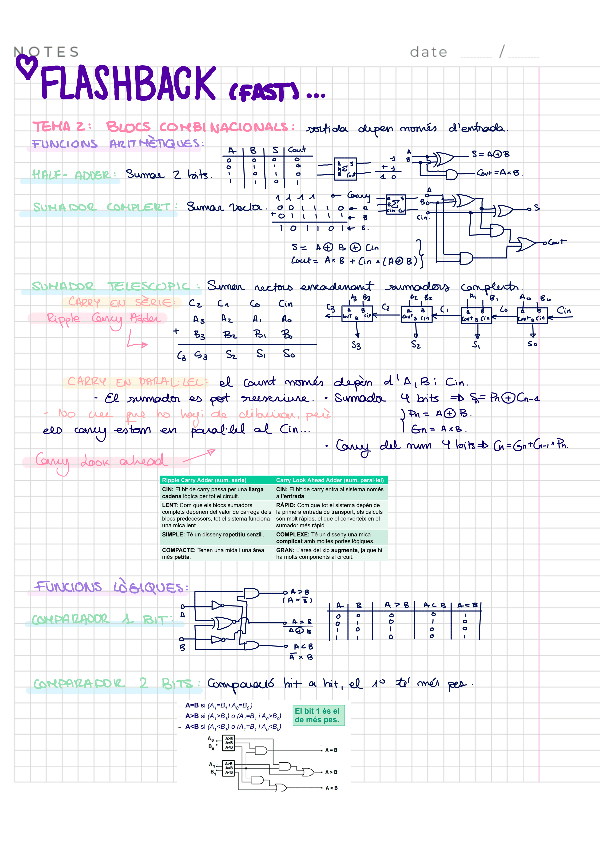 NOTES date /
FLASHBACK (FAST)...
TEMA 2: BLOCS COMBINACIONALS: sortida depen només d'entrada.
FUNCIONS ARITMÈTIQUES:
A B S Cout
HALF-ADER: Sumar 2 bits.
S = A⊕B
Cout = A×B.
SUMADOR COMPLERT: Sumar vector.
1 1 1 1 ← Carry
0 0 1 1 1 0 ← A
+ 0 1 1 1 1 1 ← B
1 0 1 1 0 1 ← S.
A
B
Cin.
S
Cout
S = A ⊕ B ⊕ Cin
Cout = A×B + Cin × (A⊕B)
SUMADOR TELESCOPIC: Sumen vectors encadenant sumadors complerts.
CARRY EN SÈRIE:
Ripple Carry Adder
C2 C1 C0 Cin
A3 A2 A1 A0
+ B3 B2 B1 B0
C3 S3 S2 S1 S0
A3 B3 A2 B2 A1 B1 A0 B0
C3 C2 C1 C0 Cin
S3 S2 S1 S0
CARRY EN PARAL·LEL: el Count només depèn d'A, B i Cin.
- El sumador es pot reescriure.
- No crec que ho hagi de dibuixar, però
els carry estam en paral·lel al Cin...
Carry Look ahead
• Sumador 4 bits ⇒ Sn = Pn⊕Cn-1
Pn = A⊕B.
Gn = A×B.
• Carry del num 4 bits ⇒ Cn = Gn + Cn-1 × Pn.
Ripple Carry Adder (sum. sèrie) Carry Look Ahead Adder (sum. paral·lel)
CIN: El bit de carry passa per una llarga cadena lògica per tot el circuit.
CIN: El bit de carry entra al sistema només a l'entrada.
LENT: Com que els blocs sumadors complets depenen del valor de carrega dels blocs predecessors, tot el sistema funciona una mica lent.
RÀPID: Com que tot el sistema depèn de la primera entrada de transport, els càlculs son molt ràpids, el que el converteix en el sumador més ràpid.
SIMPLE: Té un disseny repetitiu senzill.
COMPLEXE: Té un disseny una mica complicat amb moltes portes lògiques.
COMPACTE: Tenen una mida i una àrea més petita.
GRAN: L'àrea del xip augmenta, ja que hi ha molts components al circuit.
FUNCIONS LÒGIQUES:
COMPARADOR 1 BIT:
A
B
A > B
(A × B̅)
A⊕B
A < B
A̅ × B
A B A > B A < B A = B
COMPARADOR 2 BITS: Comparació bit a bit, el 1º té més pes.
A=B si (A₁=B₁ i A₀=B₀)
A>B si (A₁>B₁) o (A₁=B₁ i A₀>B₀)
– A<B si (A₁<B₁) o (A₁=B₁ i A₀<B₀)
El bit 1 és el
de més pes.
A₀
B₀
A₁
B₁
A>B
A=B
A<B
A>B
A=B
A<B
A = B
A > B
A < B